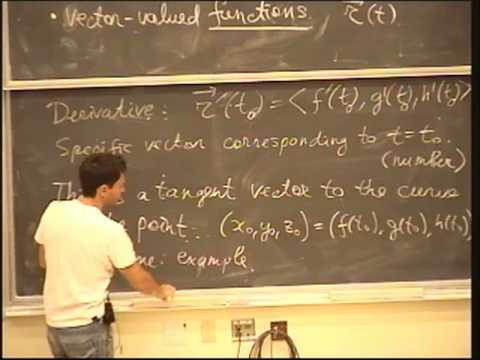 • Vector-valued functions. r⃗(t)
Derivative: r⃗'(t₀) = <f'(t₀), g'(t₀), h'(t₀)>
Specific vector corresponding to t=t₀.
(number)
a tangent vector to the curve
point (x₀, y₀, z₀) = (f(t₀), g(t₀), h(t₀))
example.